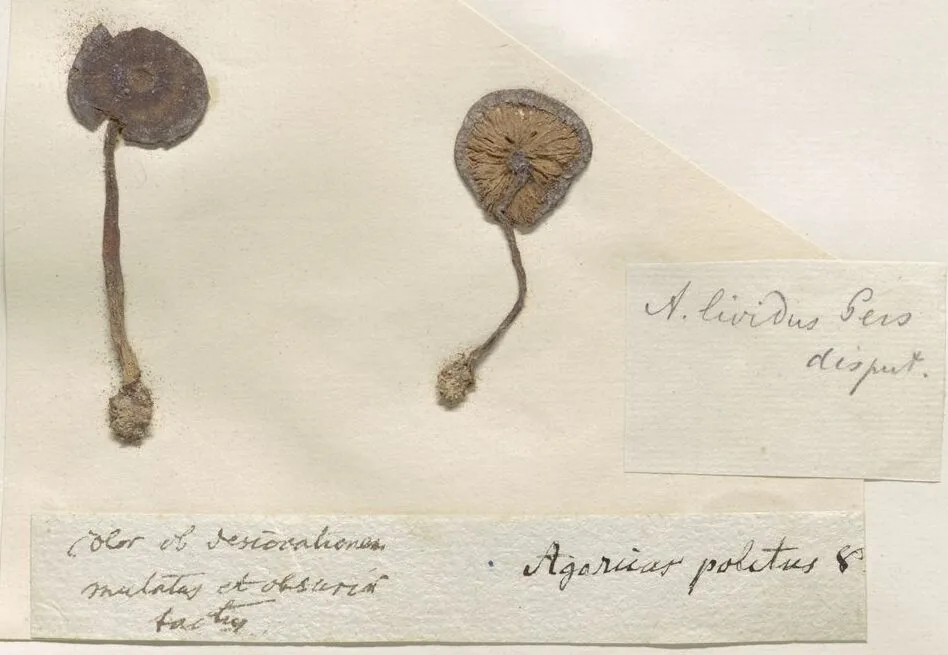 A. lividus Pers
disput.
Color ob desiccationem
mutatus et obscurior
factus.
Agaricus politus